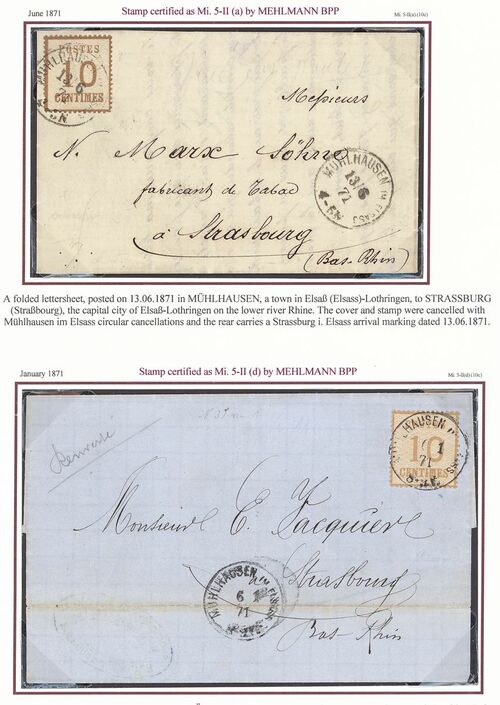 June 1871
Stamp certified as Mi. 5-II (a) by MEHLMANN BPP
Mi. 5-II(a) (10c)
POSTES
10
CENTIMES
MÜHLHAUSEN
Messieurs
N. Marx Söhne
fabricant de Tabac
à Strasbourg
(Bas-Rhin)
MÜHLHAUSEN IM ELSASS
13/6
71
4-5N
A folded lettersheet, posted on 13.06.1871 in MÜHLHAUSEN, a town in Elsaß (Elsass)-Lothringen, to STRASSBURG
(Straßbourg), the capital city of Elsaß-Lothringen on the lower river Rhine. The cover and stamp were cancelled with
Mühlhausen im Elsass circular cancellations and the rear carries a Strassburg i. Elsass arrival marking dated 13.06.1871.
January 1871
Stamp certified as Mi. 5-II (d) by MEHLMANN BPP
Mi. 5-II(d) (10c)
10
CENTIMES
71
Monsieur E. Jacquière
Strasbourg
Bas-Rhin
MÜHLHAUSEN IM ELSASS
6 1
71